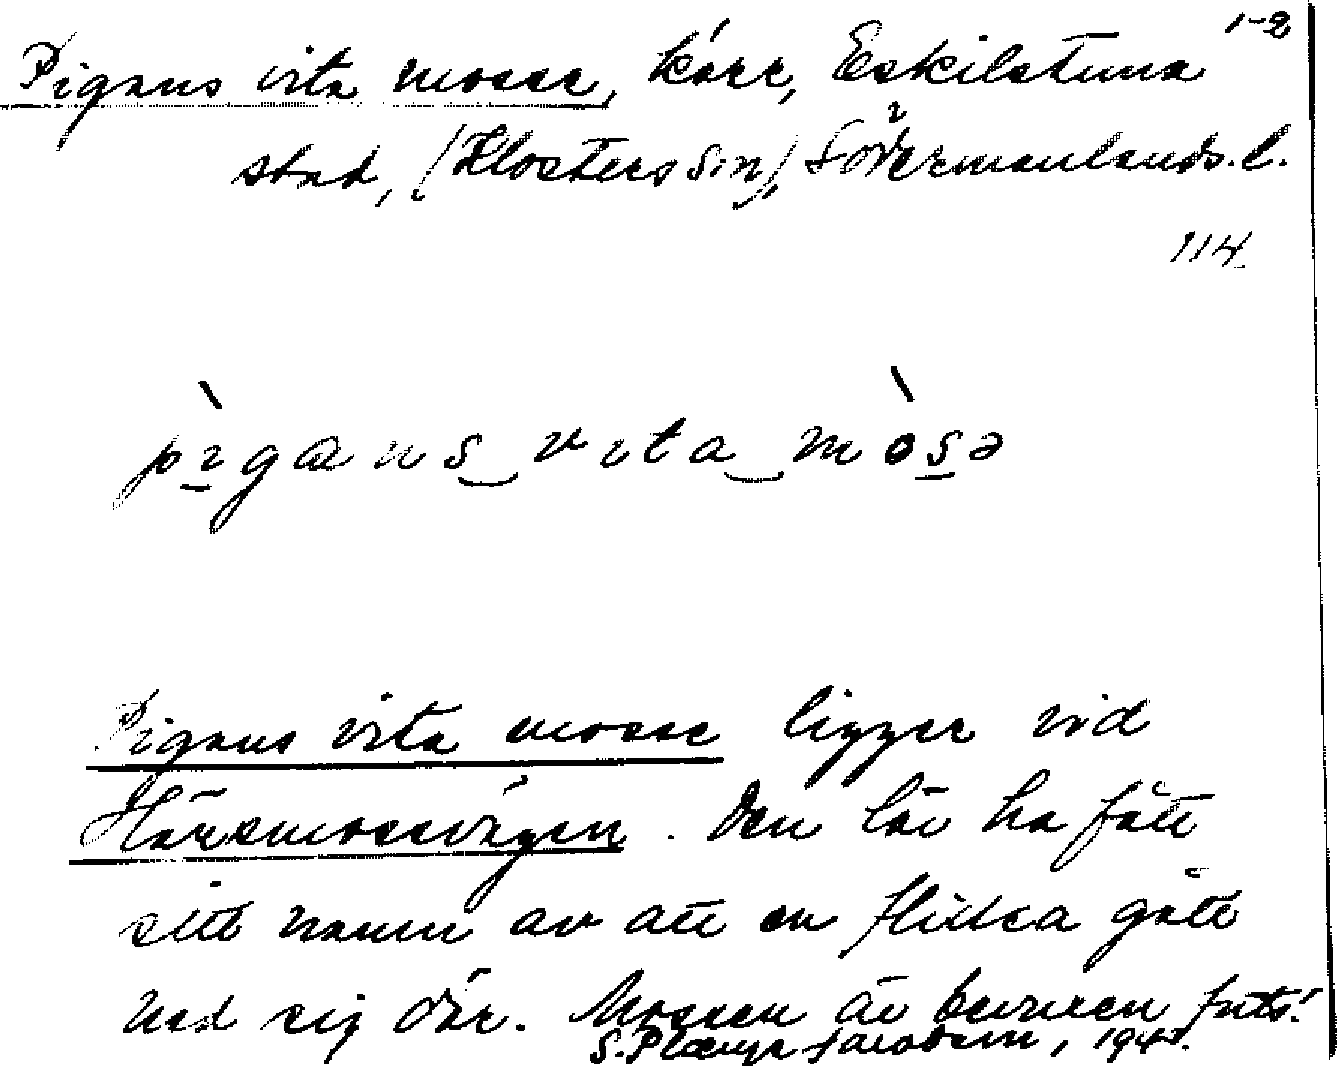 1-2
Pigans vita mosse, kärr, Eskilstuna
stad, (Klosters sn), Södermanlands l.
114.
pɪgans vita mosə
Pigans vita mosse ligger vid
Härsmossvägen. Den lär ha fått
sitt namn av att en flicka gått
ned sig där. Mossen är bevuxen
S. 1945.